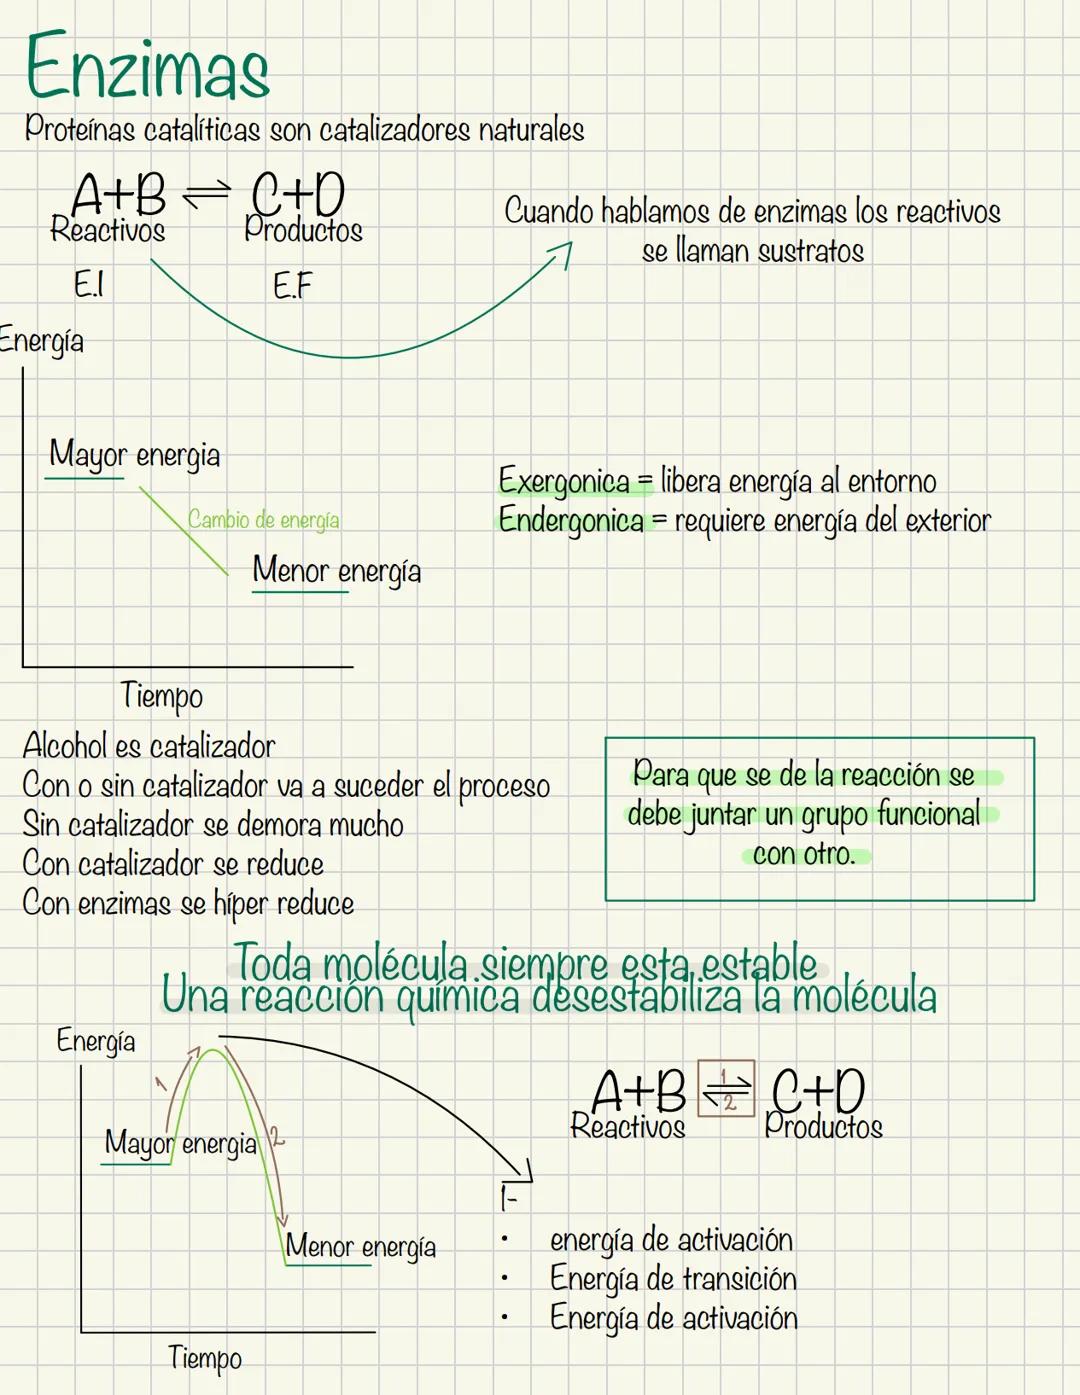 Enzimas
Proteínas catalíticas son catalizadores naturales
A+B ⇌ C+D
Reactivos Productos
E.I E.F
Cuando hablamos de enzimas los reactivos
se llaman sustratos
Energía
Mayor energia
Cambio de energía
Menor energía
Tiempo
Exergonica = libera energía al entorno
Endergonica = requiere energía del exterior
Alcohol es catalizador
Con o sin catalizador va a suceder el proceso
Sin catalizador se demora mucho
Con catalizador se reduce
Con enzimas se híper reduce
Para que se de la reacción se
debe juntar un grupo funcional
con otro.
Toda molécula siempre esta estable
Una reacción química desestabiliza la molécula
Energía
1
Mayor energia
2
Menor energía
Tiempo
A+B 1 ⇌ 2 C+D
Reactivos Productos
1-
• energía de activación
• Energía de transición
• Energía de activación